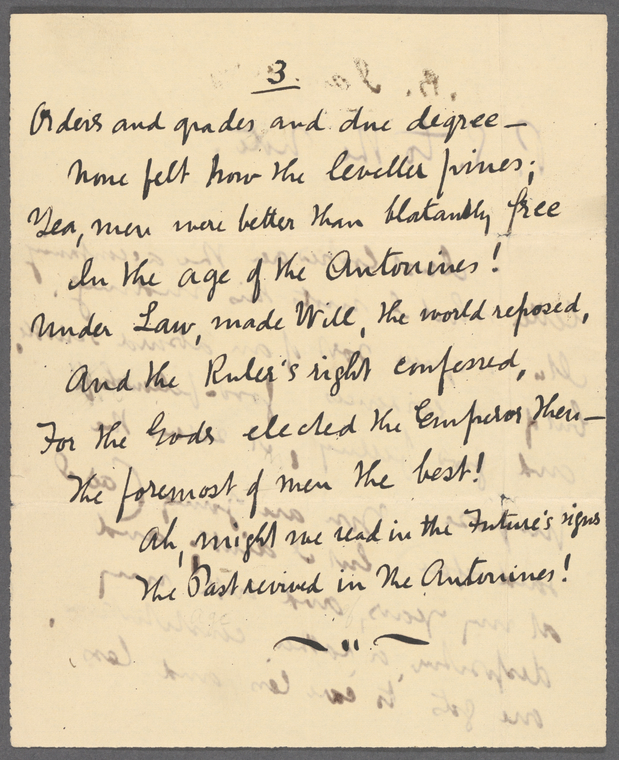 3.
Orders and grades and due degree—
None felt how the leveller pines;
Yea, men were better than blatantly free
In the age of the Antonines!
Under Law, made Will, the world reposed,
And the Ruler's right confessed,
For the Gods elected the Emperor then—
The foremost of men the best!
Ah, might we read in the Future's signs
The Past revived in the Antonines!